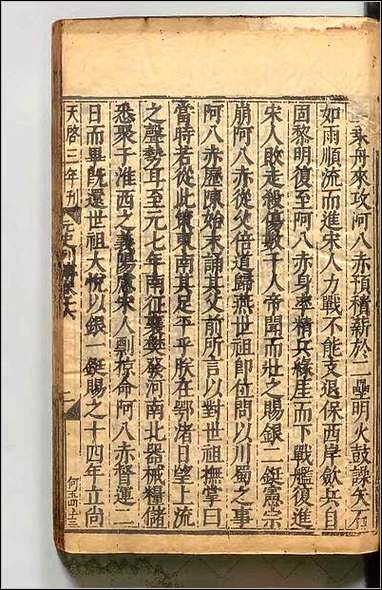 乘舟來攻阿八赤預積薪於二壘明火鼓譟矢石
如雨順流而進宋人力戰不能支退保西岸歛兵自
固黎明復至阿八赤身率精兵緣崖而下戰艦復進
宋人敗走殺傷數千人帝聞而壯之賜銀二鋌憲宗
崩阿八赤從父倍道歸燕世祖即位問以川蜀之事
阿八赤歷陳始末誦其父前所言以對世祖撫掌曰
當時若從此策東南其足平乎朕在鄂渚日望上流
之聲勢耳至元七年南征襄樊發河南北器械糧儲
悉聚于淮西之義陽慮宋人剽掠命阿八赤督運二
日而畢既還世祖大悅以銀一鋌賜之十四年立尚
天啓二年刊